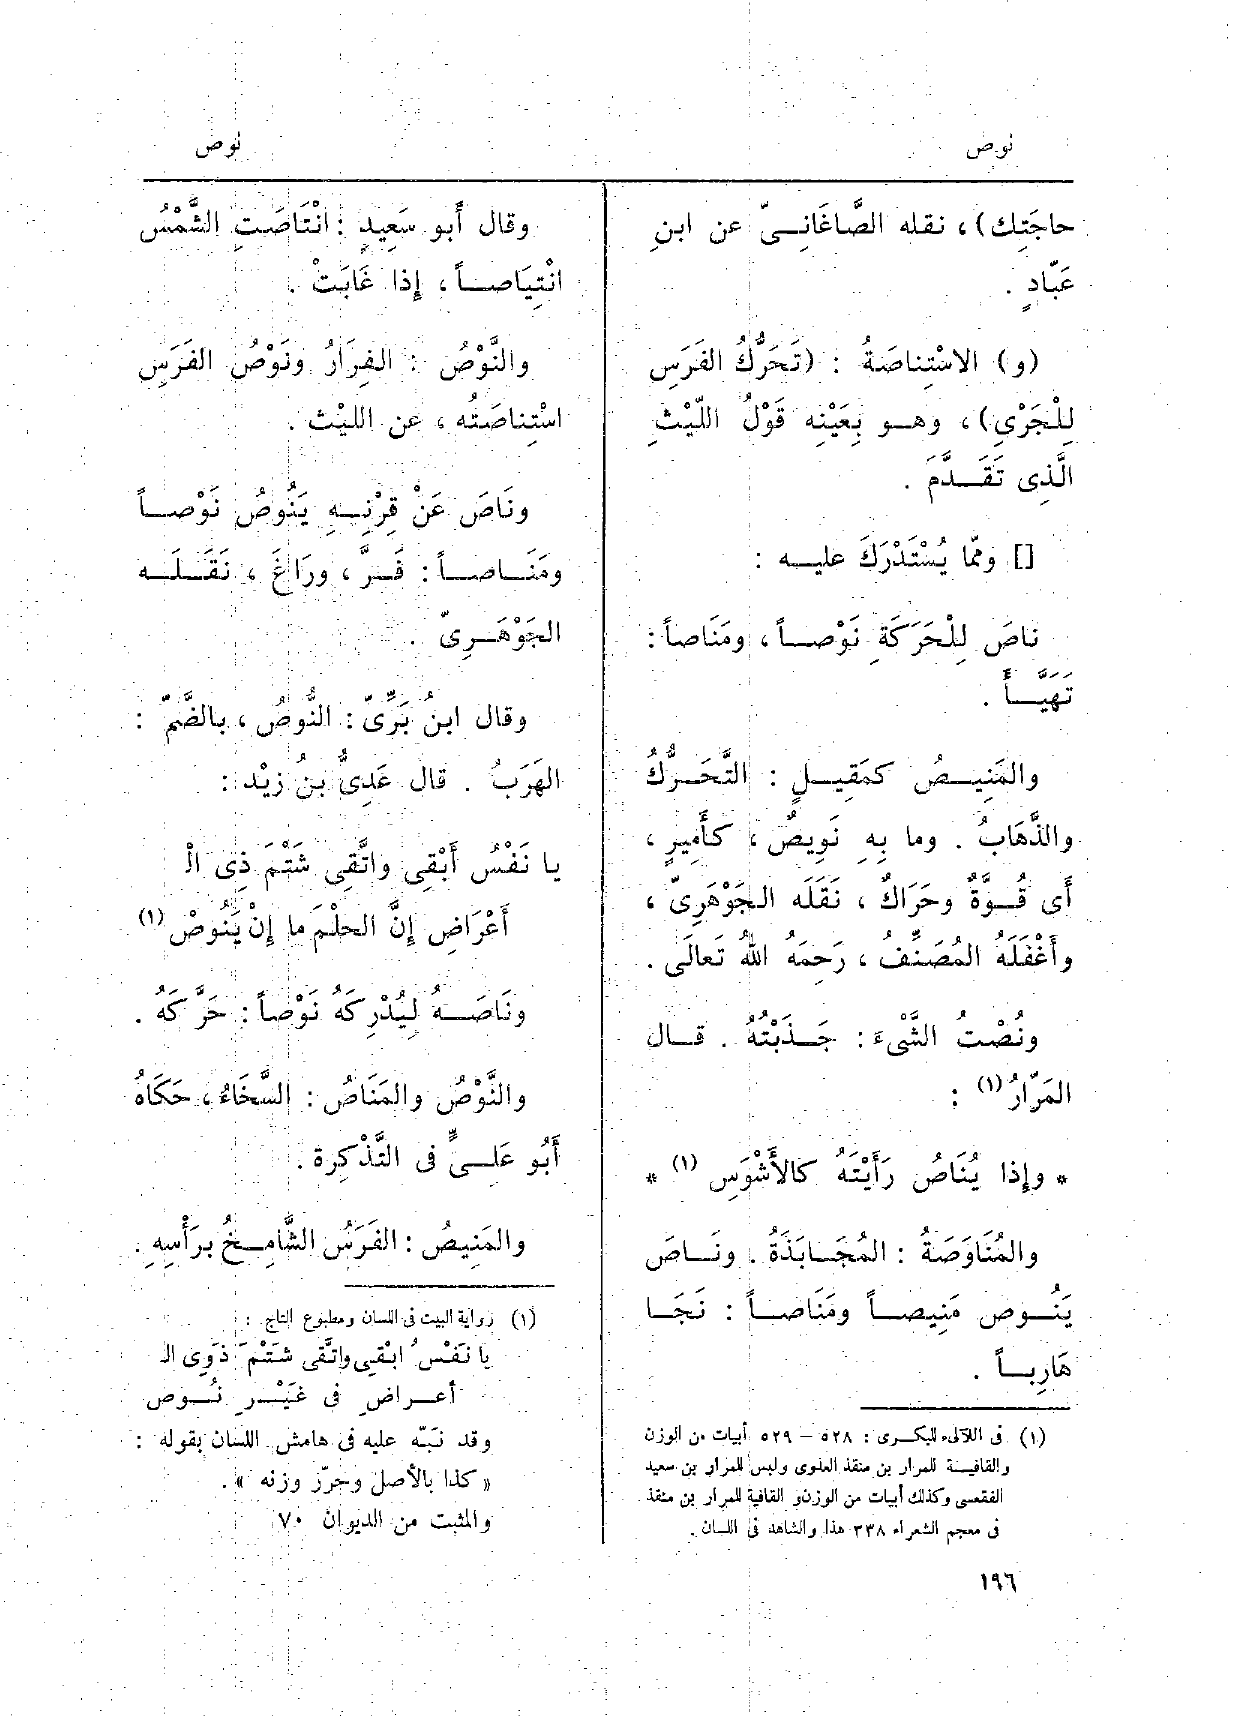 نوص
نوص
حاجَتِك)، نقله الصَّاغَانِىّ عن ابنِ
عَبّادٍ .
(و) الاسْتِناصَةُ : (تَحَرُّكُ الفَرَسِ
لِلْجَرْىِ)، وهو بِعَيْنِه قَوْلُ اللَّيْثِ
الَّذِى تَقَدَّمَ .
[] وممّا يُسْتَدْرَكَ عليه :
ناصَ لِلْحَرَكَةِ نَوْصاً، ومَنَاصاً :
تَهَيَّأَ .
والمَنِيصُ كمَقِيلٍ : التَّحَرُّكُ
والذَّهَابُ . وما بِهِ نَوِيصٌ، كأَمِيرٍ،
أَى قُوَّةٌ وحَرَاكٌ ، نَقَلَه الجَوْهَرِىّ ،
وأَغْفَلَهُ المُصَنِّف ، رَحِمَهُ اللهُ تَعالَى .
ونُصْتُ الشَّىْءَ : جَذَبْتُهُ . قال
المَرّارُ (١) :
* وإِذا يُنَاصُ رَأَيْتَهُ كالأَشْوَسِ (١) *
والمُنَاوَصَةُ : المُجَابَذَةُ . ونَاصَ
يَنُوص مَنِيصاً ومَنَاصاً : نَجَا
هَارِباً .
(١) فى اللآلىء للبكرى : ٥٢٨ – ٥٢٩ أبيات من الوزن
والقافية للمرار بن منقذ العلوى وليس للمرار بن سعيد
الفقعسى وكذلك أبيات من الوزن والقافية للمرار بن منقذ
فى معجم الشعراء ٣٣٨ هذا والشاهد فى اللسان .
وقال أَبو سَعِيدٍ : انْتَاصَتِ الشَّمْسُ
انْتِيَاصاً ، إِذا غَابَتْ .
والنَّوْصُ : الفِرَارُ ونَوْصُ الفَرَسِ
اسْتِناصَتُه ، عن الليْث .
ونَاصَ عَنْ قِرْنِهِ يَنُوصُ نَوْصاً
ومَنَاصاً : فَرَّ ، ورَاغَ ، نَقَلَه
الجَوْهَرِىّ .
وقال ابنُ بَرِّىّ : النُّوصُ ، بالضَّمّ :
الهَرَبُ . قال عَدِىُّ بنُ زيْد :
يا نَفْسُ أَبْقِى واتَّقِى شَتْمَ ذِى الْ
أَعْرَاضِ إِنَّ الحلْمَ ما إِنْ يَنُوصْ (١)
ونَاصَهُ لِيُدْرِكَهُ نَوْصاً : حَرَّكَهُ .
والنَّوْصُ والمَنَاصُ : السَّخَاءُ ، حَكَاهُ
أَبُو عَلِىٍّ فى التَّذْكِرة .
والمَنِيصُ : الفَرَسُ الشَّامِخُ برَأْسِهِ .
(١) رواية البيت فى اللسان ومطبوع التاج :
يا نَفْسُ ابْقِى واتَّقى شَتْمَ ذَوِى الـ
أعراضِ فى غَيْرِ نُوص
وقد نَبّه عليه فى هامش اللسان بقوله :
« كذا بالأصل وحرّر وزنه » .
والمثبت من الديوان ٧٠
١٩٦